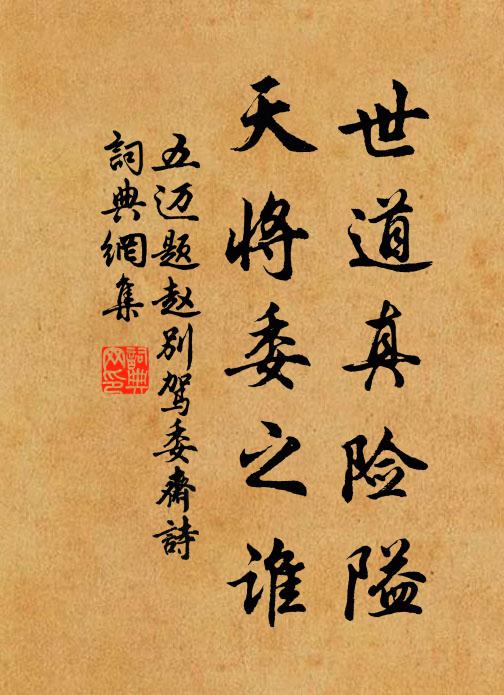 世道真险隘
天将委之谁
五迈题赵别驾委斋詩
詞典網集
詞典网印